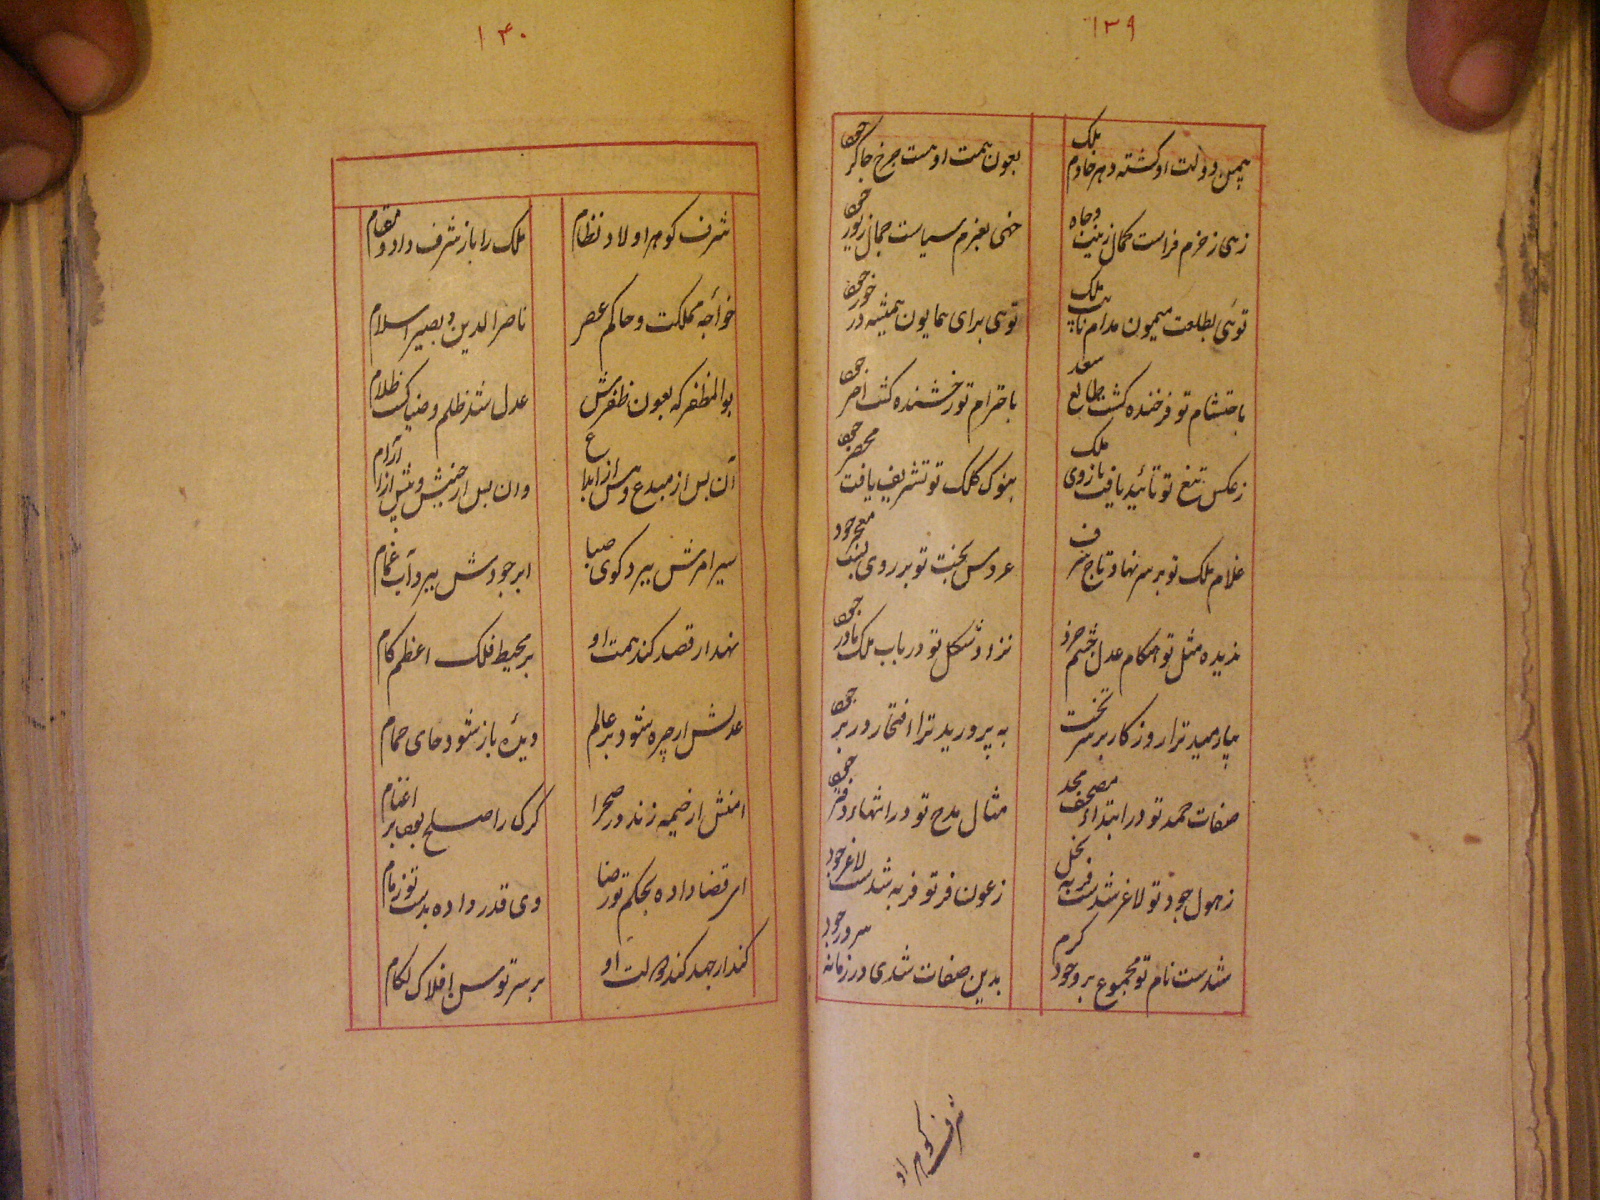 ۱۳۹
بیمن دولت او گشته دهر خادم ملک
بعون همت او هست چرخ چاکر جود
زهی ز حزم فراست کمال زینت و جاه
خهی بعزم سیاست جمال زیور
توئی بطلعت میمون مدام نایب ملک
توئی برای همایون همیشه در خور جود
باحتشام تو فرخنده گشت طالع سعد
باحترام تو رخشنده گشت اختر جود
ز عکس تیغ تو تائید یافت بازوی ملک
بنوک کلک تو تشریف یافت محضر جود
غلام ملک تو بر سر نهاد تاج شرف
عروس بخت تو بر روی بست معجر جود
ندیده مثل تو هنگام عدل چشم خرد
نزاد شکل تو در باب ملک مادر جود
بپارمید ترا روزگار بر سر تخت
به پرورید ترا افتخار در بر جود
صفات حمد تو در ابتداء مصحف مجد
مثال مدح تو در انتهاء دفتر جود
ز هول جود تو لاغر شدست فربه بخل
ز عون فر تو فربه شدست لاغر جود
شدست نام تو مجموع بر وجود کرم
بدین صفات شدی در زمانه سرور جود
شرف گوهر اولاد
۱۴۰
شرف گوهر اولاد نظام
ملک را باز شرف داد و مقام
خواجه مملکت و حاکم عصر
ناصر الدین و نصیر اسلام
بوالمظفر که بعون ظفرش
عدل شد ظلم و ضیا گشت ظلام
آن پس از مبدع و پیش از ابداع
وان پس از جنبش و پیش از آرام
سیر امرش ببرد گوی صبا
ابر جودش ببرد آب غمام
نهد ار قصد کند همت او
بر محیط فلک اعظم گام
عدلش ار چیره شود بر عالم
دیده باز شود جای حمام
امنش ار خیمه زند در صحرا
گرگ را صلح بود بر اغنام
ای قضا داده بحکم تو رضا
وی قدر داده بدست تو زمام
کند ار جهد کند دولت او
بر سر توسن افلاک لگام